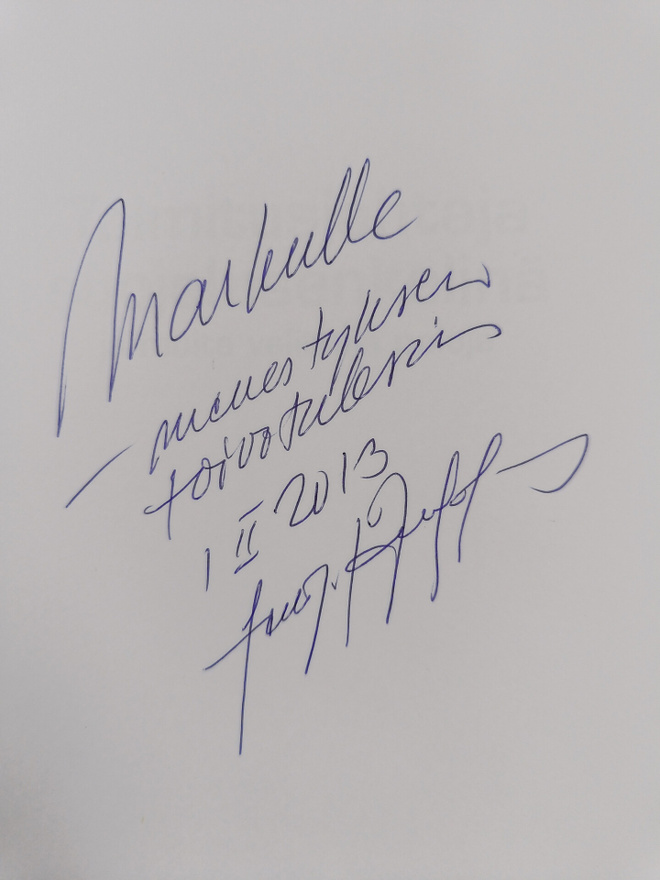 Markulle
- menestyksen
toivotuksin
1 II 2013